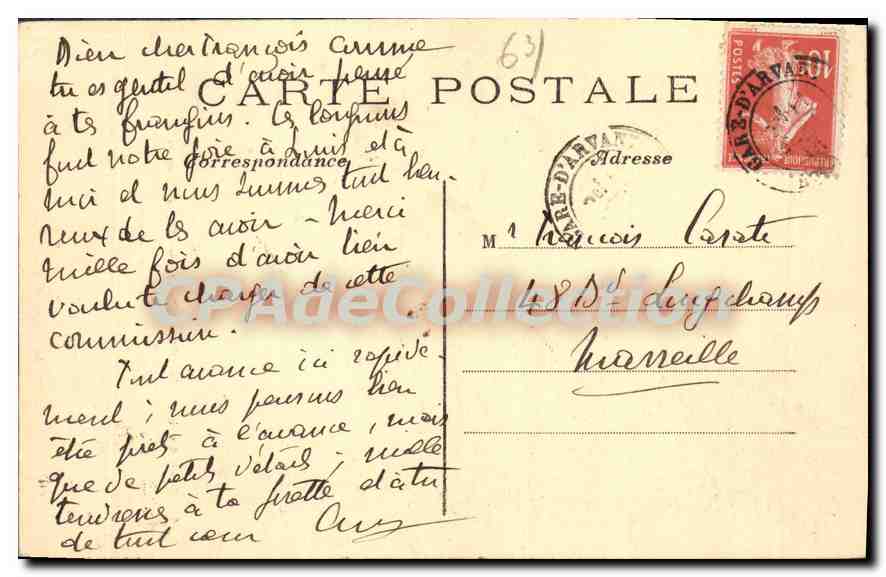 63)
CARTE POSTALE
Correspondance
Adresse
Bien cher François comme
tu es gentil d'avoir pensé
à tes frangins. Ces lorgnons
font notre joie à Louis et à
moi et nous sommes tout heu-
reux de les avoir - Merci
mille fois d'avoir bien
voulu te charger de cette
commission.
Tout avance ici rapide-
ment ; nous pensons bien
être prêts à l'avance, mais
que de petits détails ; mille
tendresses à ta et à tu
de tout cœur
GARE-D'ARVANT
GARE-D'ARVANT
POSTES
10
Mr François
48 Bd Longchamps
Marseille
CPAdeCollection